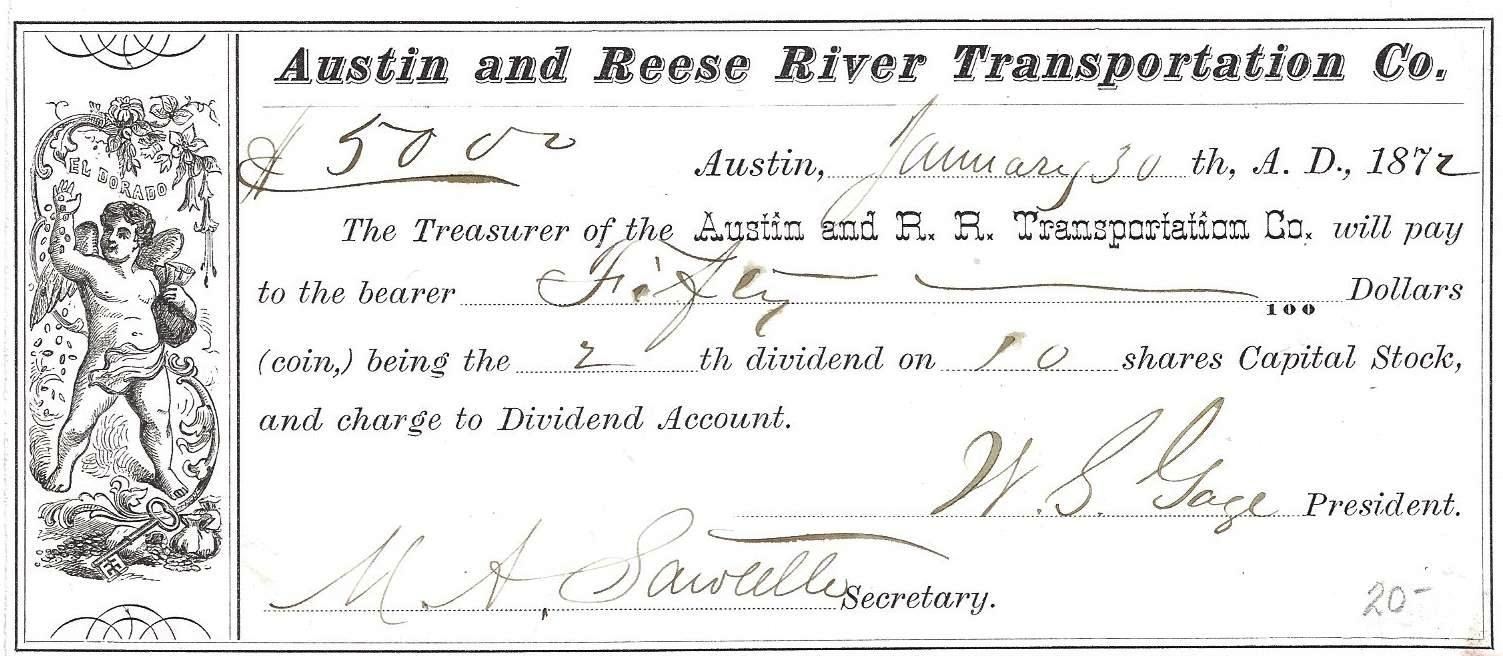 Austin and Reese River Transportation Co.
EL DORADO
$ 50 00
Austin, January 30 th, A. D., 1872
The Treasurer of the Austin and R. R. Transportation Co. will pay
to the bearer Fifty 100 Dollars
(coin,) being the 2 th dividend on 10 shares Capital Stock,
and charge to Dividend Account.
W. S. Gage President.
M. A. Sawtelle Secretary.
20-